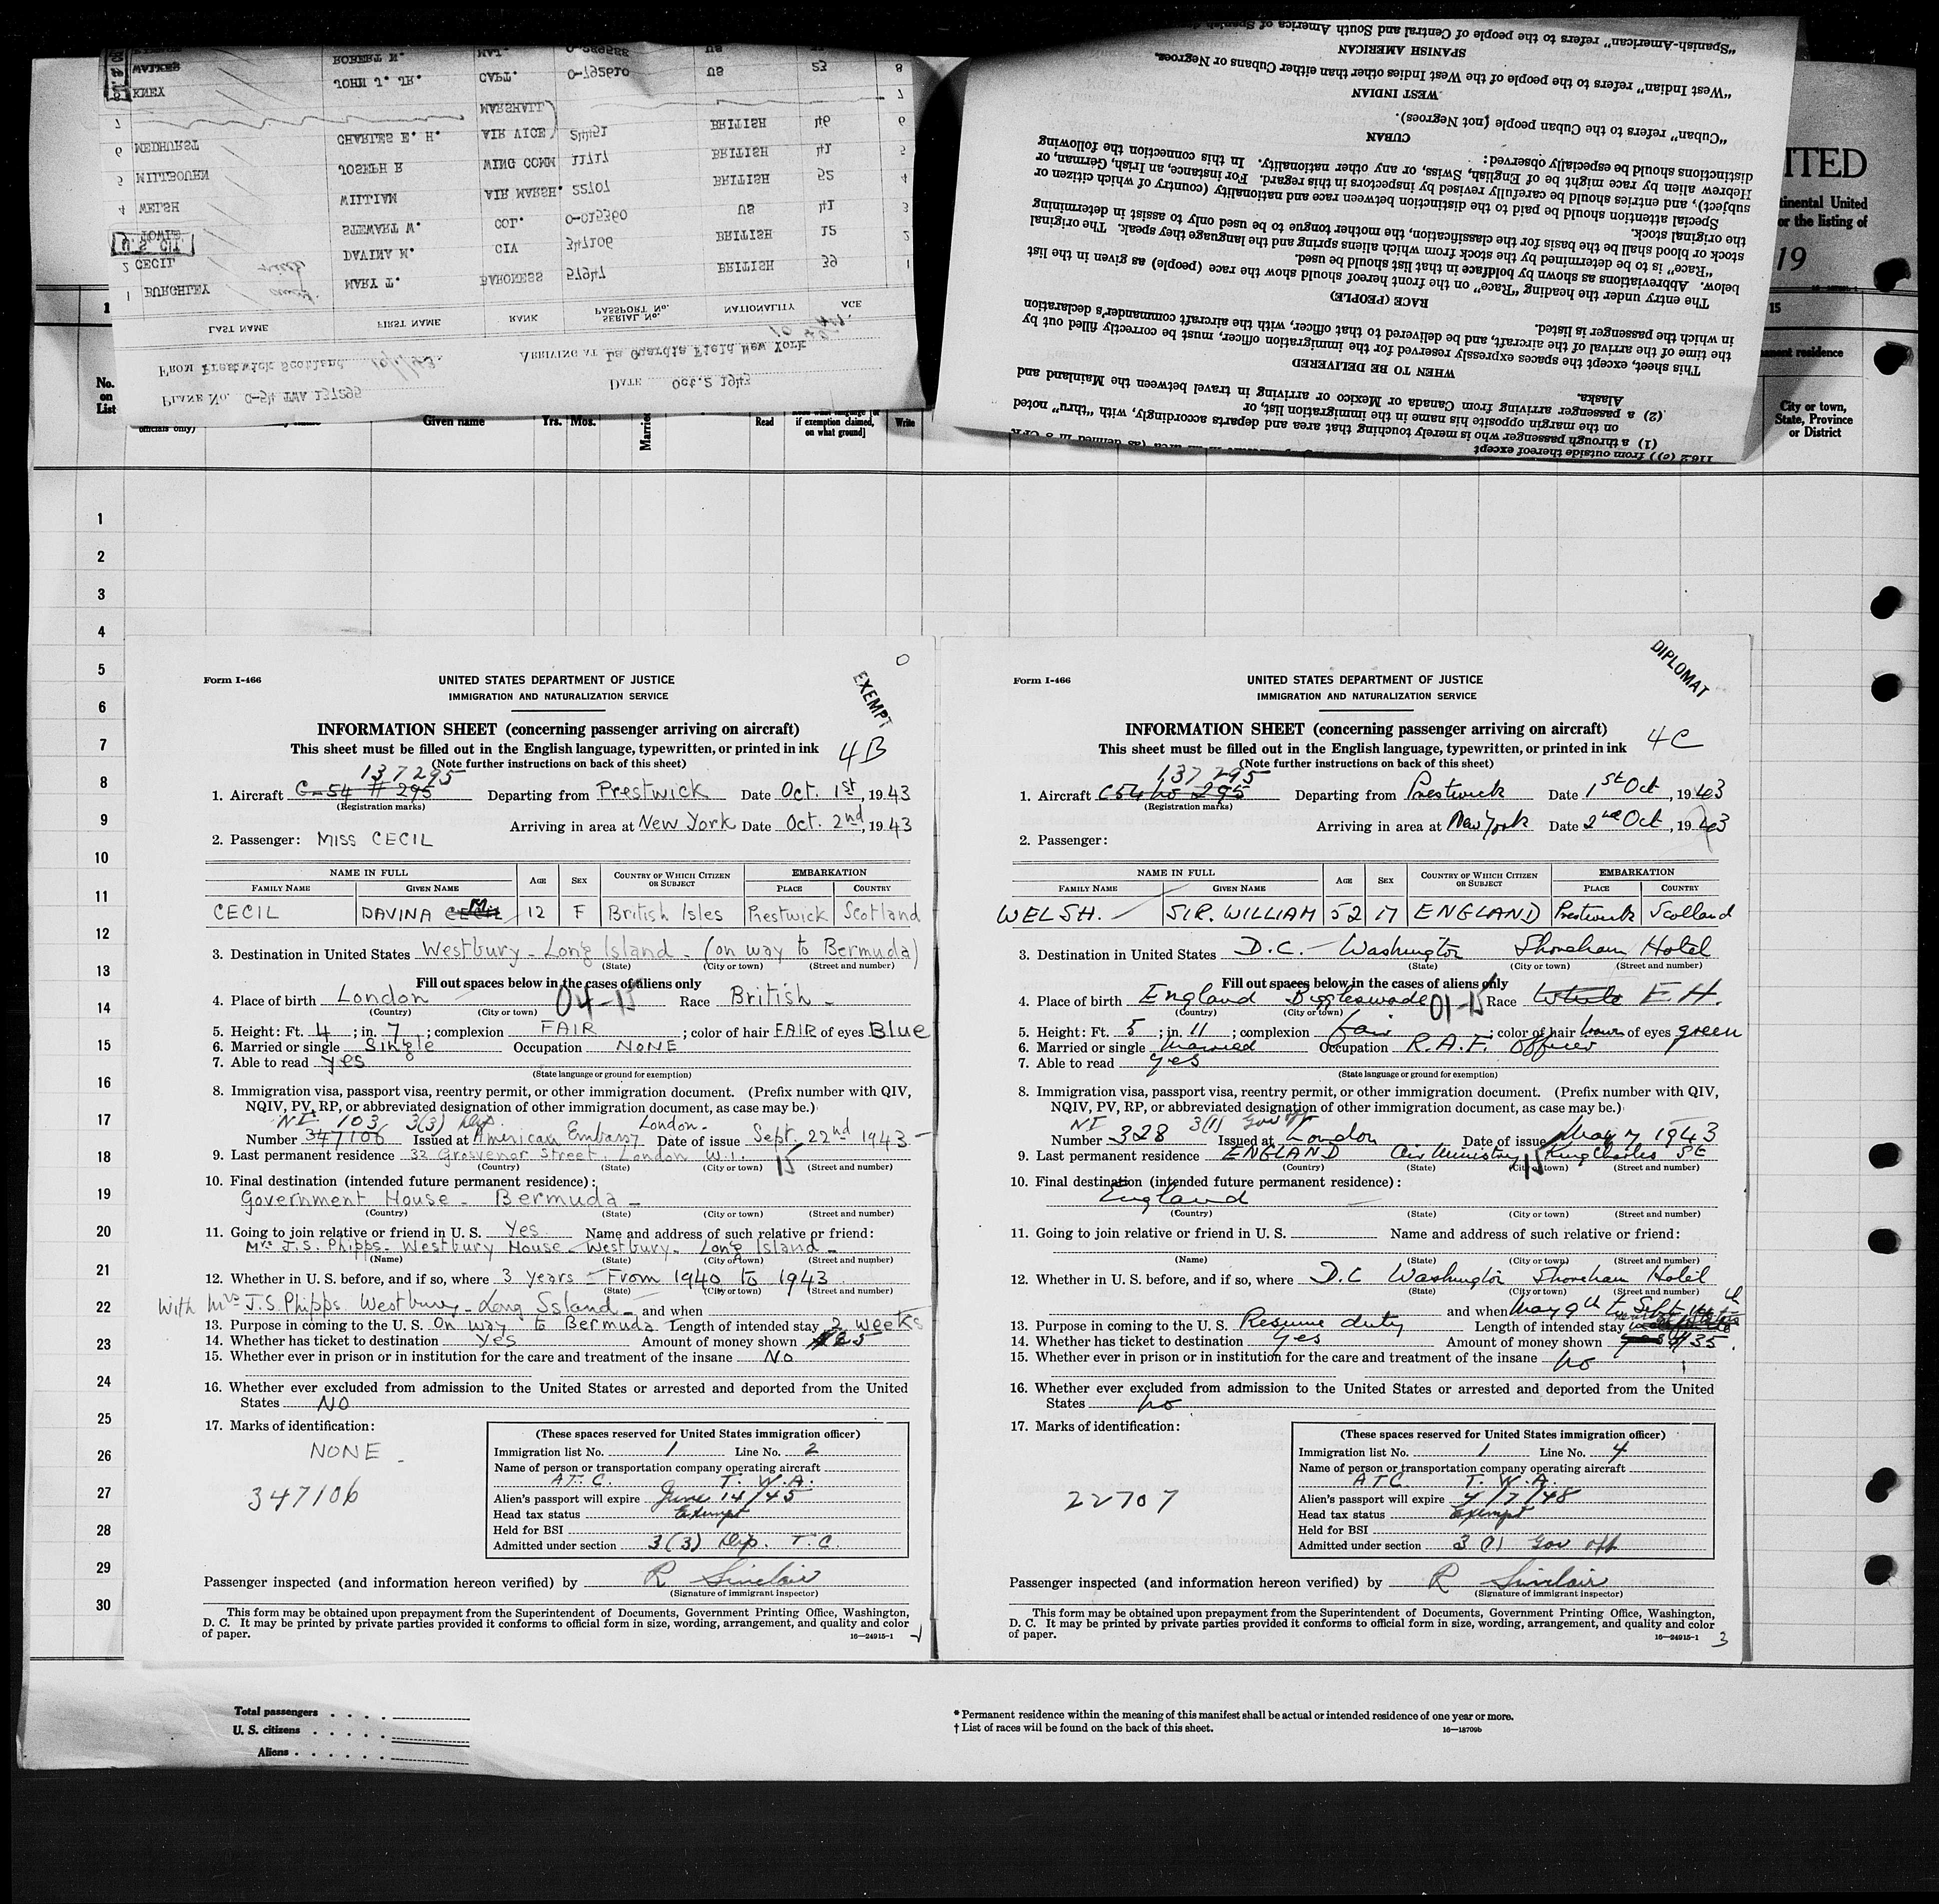 PLANE No. C-54 TWA 137295
DATE Oct.2 1943
FROM Prestwick Scotland
ARRIVING AT La Guardia Field New York
LAST NAME FIRST NAME RANK PASSPORT No. SERIAL No. NATIONALITY AGE
1 BURGHLEY MARY T. BARONESS 57947 BRITISH 39 1
2 CECIL DAVINA M. CIV 347106 BRITISH 12 2
U.S. CIT. STEWART W. COL. O-015360 US 41 3
4 WELSH WILLIAM AIR MARSH. 22707 BRITISH 52 4
5 MILLBOURN JOSEPH E WING COMM 11717 BRITISH 41 5
6 MEDHURST CHARLES E. H. AIR VICE MARSHALL 2451 BRITISH 46 6
7 7
KNEX JOHN J. JR. CAPT. O-792610 US 23 8
ROBERT N. MAJ. O-289588 US
116.2 (c)) from outside thereof except
(1) a through passenger who is merely touching that area and departs accordingly, with "thru" noted
on the margin opposite his name in the immigration list, or
(2) a passenger arriving from Canada or Mexico or arriving in travel between the Mainland and
Alaska.
WHEN TO BE DELIVERED
This sheet, except the spaces expressly reserved for the immigration officer, must be correctly filled out by
the time of the arrival of the aircraft, and be delivered to that officer, with the aircraft commander's declaration
in which the passenger is listed.
RACE (PEOPLE)
The entry under the heading "Race" on the front hereof should show the race (people) as given in the list
below. Abbreviations as shown by boldface in that list should be used.
"Race" is to be determined by the stock from which aliens spring and the language they speak. The original
stock or blood shall be the basis for the classification, the mother tongue to be used only to assist in determining
the original stock.
Special attention should be paid to the distinction between race and nationality (country of which citizen or
subject), and entries should be carefully revised by inspectors in this regard. For instance, an Irish, German, or
Hebrew alien by race might be of English, Swiss, or any other nationality. In this connection the following
distinctions should be especially observed:
CUBAN
"Cuban" refers to the Cuban people (not Negroes).
WEST INDIAN
"West Indian" refers to the people of the West Indies other than either Cubans or Negroes.
SPANISH AMERICAN
"Spanish-American" refers to the people of Central and South America of Spanish
ITED
tinental United
or the listing of
19
15
anent residence
City or town,
State, Province
or District
1
No.
on
List
officials only)
Given name
Yrs. Mos.
Married
Read
if exemption claimed,
on what ground]
Write
1
2
3
4
5
6
7
8
9
10
11
12
13
14
15
16
17
18
19
20
21
22
23
24
25
26
27
28
29
30
Form I-466
UNITED STATES DEPARTMENT OF JUSTICE
IMMIGRATION AND NATURALIZATION SERVICE
EXEMPT
INFORMATION SHEET (concerning passenger arriving on aircraft)
This sheet must be filled out in the English language, typewritten, or printed in ink
4B
(Note further instructions on back of this sheet)
137295
1. Aircraft C-54 # 295 Departing from Prestwick Date Oct. 1st, 1943
(Registration marks)
Arriving in area at New York Date Oct. 2nd, 1943
2. Passenger: MISS CECIL
NAME IN FULL AGE SEX COUNTRY OF WHICH CITIZEN OR SUBJECT EMBARKATION
FAMILY NAME GIVEN NAME PLACE COUNTRY
CECIL DAVINA M. 12 F British Isles Prestwick Scotland
3. Destination in United States Westbury - Long Island - (on way to Bermuda)
(State) (City or town) (Street and number)
Fill out spaces below in the cases of aliens only
4. Place of birth London 04-15 Race British -
(Country) (City or town)
5. Height: Ft. 4; in. 7; complexion FAIR; color of hair FAIR of eyes Blue
6. Married or single Single Occupation NONE
7. Able to read yes
(State language or ground for exemption)
8. Immigration visa, passport visa, reentry permit, or other immigration document. (Prefix number with QIV,
NQIV, PV, RP, or abbreviated designation of other immigration document, as case may be.)
NI 103 3(3) Dip. London.
Number 347106 Issued at American Embassy Date of issue Sept. 22nd 1943 -
9. Last permanent residence 32 Grosvenor Street. London W.1. 15
(Country) (State) (City or town) (Street and number)
10. Final destination (intended future permanent residence):
Government House - Bermuda -
(Country) (State) (City or town) (Street and number)
11. Going to join relative or friend in U. S. Yes Name and address of such relative or friend:
Mrs J.S. Phipps - Westbury House - Westbury - Long Island -
(Name) (State) (City or town) (Street and number)
12. Whether in U. S. before, and if so, where 3 years - From 1940 to 1943
(State) (City or town) (Street and number)
With Mrs J.S. Phipps Westbury - Long Island - and when
13. Purpose in coming to the U. S. On way to Bermuda Length of intended stay 2 weeks
14. Whether has ticket to destination Yes Amount of money shown
15. Whether ever in prison or in institution for the care and treatment of the insane No
16. Whether ever excluded from admission to the United States or arrested and deported from the United
States NO
17. Marks of identification:
NONE
347106
(These spaces reserved for United States immigration officer)
Immigration list No. 1 Line No. 2
Name of person or transportation company operating aircraft
A.T.C. T. W. A.
Alien's passport will expire June 14/45
Head tax status Exempt
Held for BSI
Admitted under section 3(3) Dip. T. C.
Passenger inspected (and information hereon verified) by R Sinclair
(Signature of immigrant inspector)
This form may be obtained upon prepayment from the Superintendent of Documents, Government Printing Office, Washington,
D. C. It may be printed by private parties provided it conforms to official form in size, wording, arrangement, and quality and color
of paper. 16—24915-1
Form I-466
UNITED STATES DEPARTMENT OF JUSTICE
IMMIGRATION AND NATURALIZATION SERVICE
DIPLOMAT
INFORMATION SHEET (concerning passenger arriving on aircraft)
This sheet must be filled out in the English language, typewritten, or printed in ink
4C
(Note further instructions on back of this sheet)
137295
1. Aircraft C54 no 295 Departing from Prestwick Date 1st Oct, 1943
(Registration marks)
Arriving in area at New York Date 2nd Oct, 1943
2. Passenger:
NAME IN FULL AGE SEX COUNTRY OF WHICH CITIZEN OR SUBJECT EMBARKATION
FAMILY NAME GIVEN NAME PLACE COUNTRY
WELSH. SIR. WILLIAM 52 M ENGLAND Prestwick Scotland
3. Destination in United States D.C. - Washington Shoreham Hotel
(State) (City or town) (Street and number)
Fill out spaces below in the cases of aliens only
4. Place of birth England Biggleswade 01-15 Race White E.H.
(Country) (City or town)
5. Height: Ft. 5; in. 11; complexion fair; color of hair brown of eyes green
6. Married or single Married Occupation R.A.F. Officer
7. Able to read yes
(State language or ground for exemption)
8. Immigration visa, passport visa, reentry permit, or other immigration document. (Prefix number with QIV,
NQIV, PV, RP, or abbreviated designation of other immigration document, as case may be.)
NI 3(1) Gov off
Number 328 Issued at London Date of issue May 7 1943
9. Last permanent residence ENGLAND Air Ministry King Charles St 15
(Country) (State) (City or town) (Street and number)
10. Final destination (intended future permanent residence):
England
(Country) (State) (City or town) (Street and number)
11. Going to join relative or friend in U. S. Name and address of such relative or friend:
(Name) (State) (City or town) (Street and number)
12. Whether in U. S. before, and if so, where D.C Washington Shoreham Hotel
(State) (City or town) (Street and number)
and when May 9th to Sept
13. Purpose in coming to the U. S. Resume duty Length of intended stay
14. Whether has ticket to destination yes Amount of money shown $35
15. Whether ever in prison or in institution for the care and treatment of the insane no
16. Whether ever excluded from admission to the United States or arrested and deported from the United
States no
17. Marks of identification:
22707
(These spaces reserved for United States immigration officer)
Immigration list No. 1 Line No. 4
Name of person or transportation company operating aircraft
ATC T. W. A.
Alien's passport will expire 4/7/48
Head tax status Exempt
Held for BSI
Admitted under section 3 (1) Gov off
Passenger inspected (and information hereon verified) by R Sinclair
(Signature of immigrant inspector)
This form may be obtained upon prepayment from the Superintendent of Documents, Government Printing Office, Washington,
D. C. It may be printed by private parties provided it conforms to official form in size, wording, arrangement, and quality and color
of paper. 16—24915-1
3
Total passengers
U. S. citizens
Aliens
* Permanent residence within the meaning of this manifest shall be actual or intended residence of one year or more.
† List of races will be found on the back of this sheet. 16—18709b